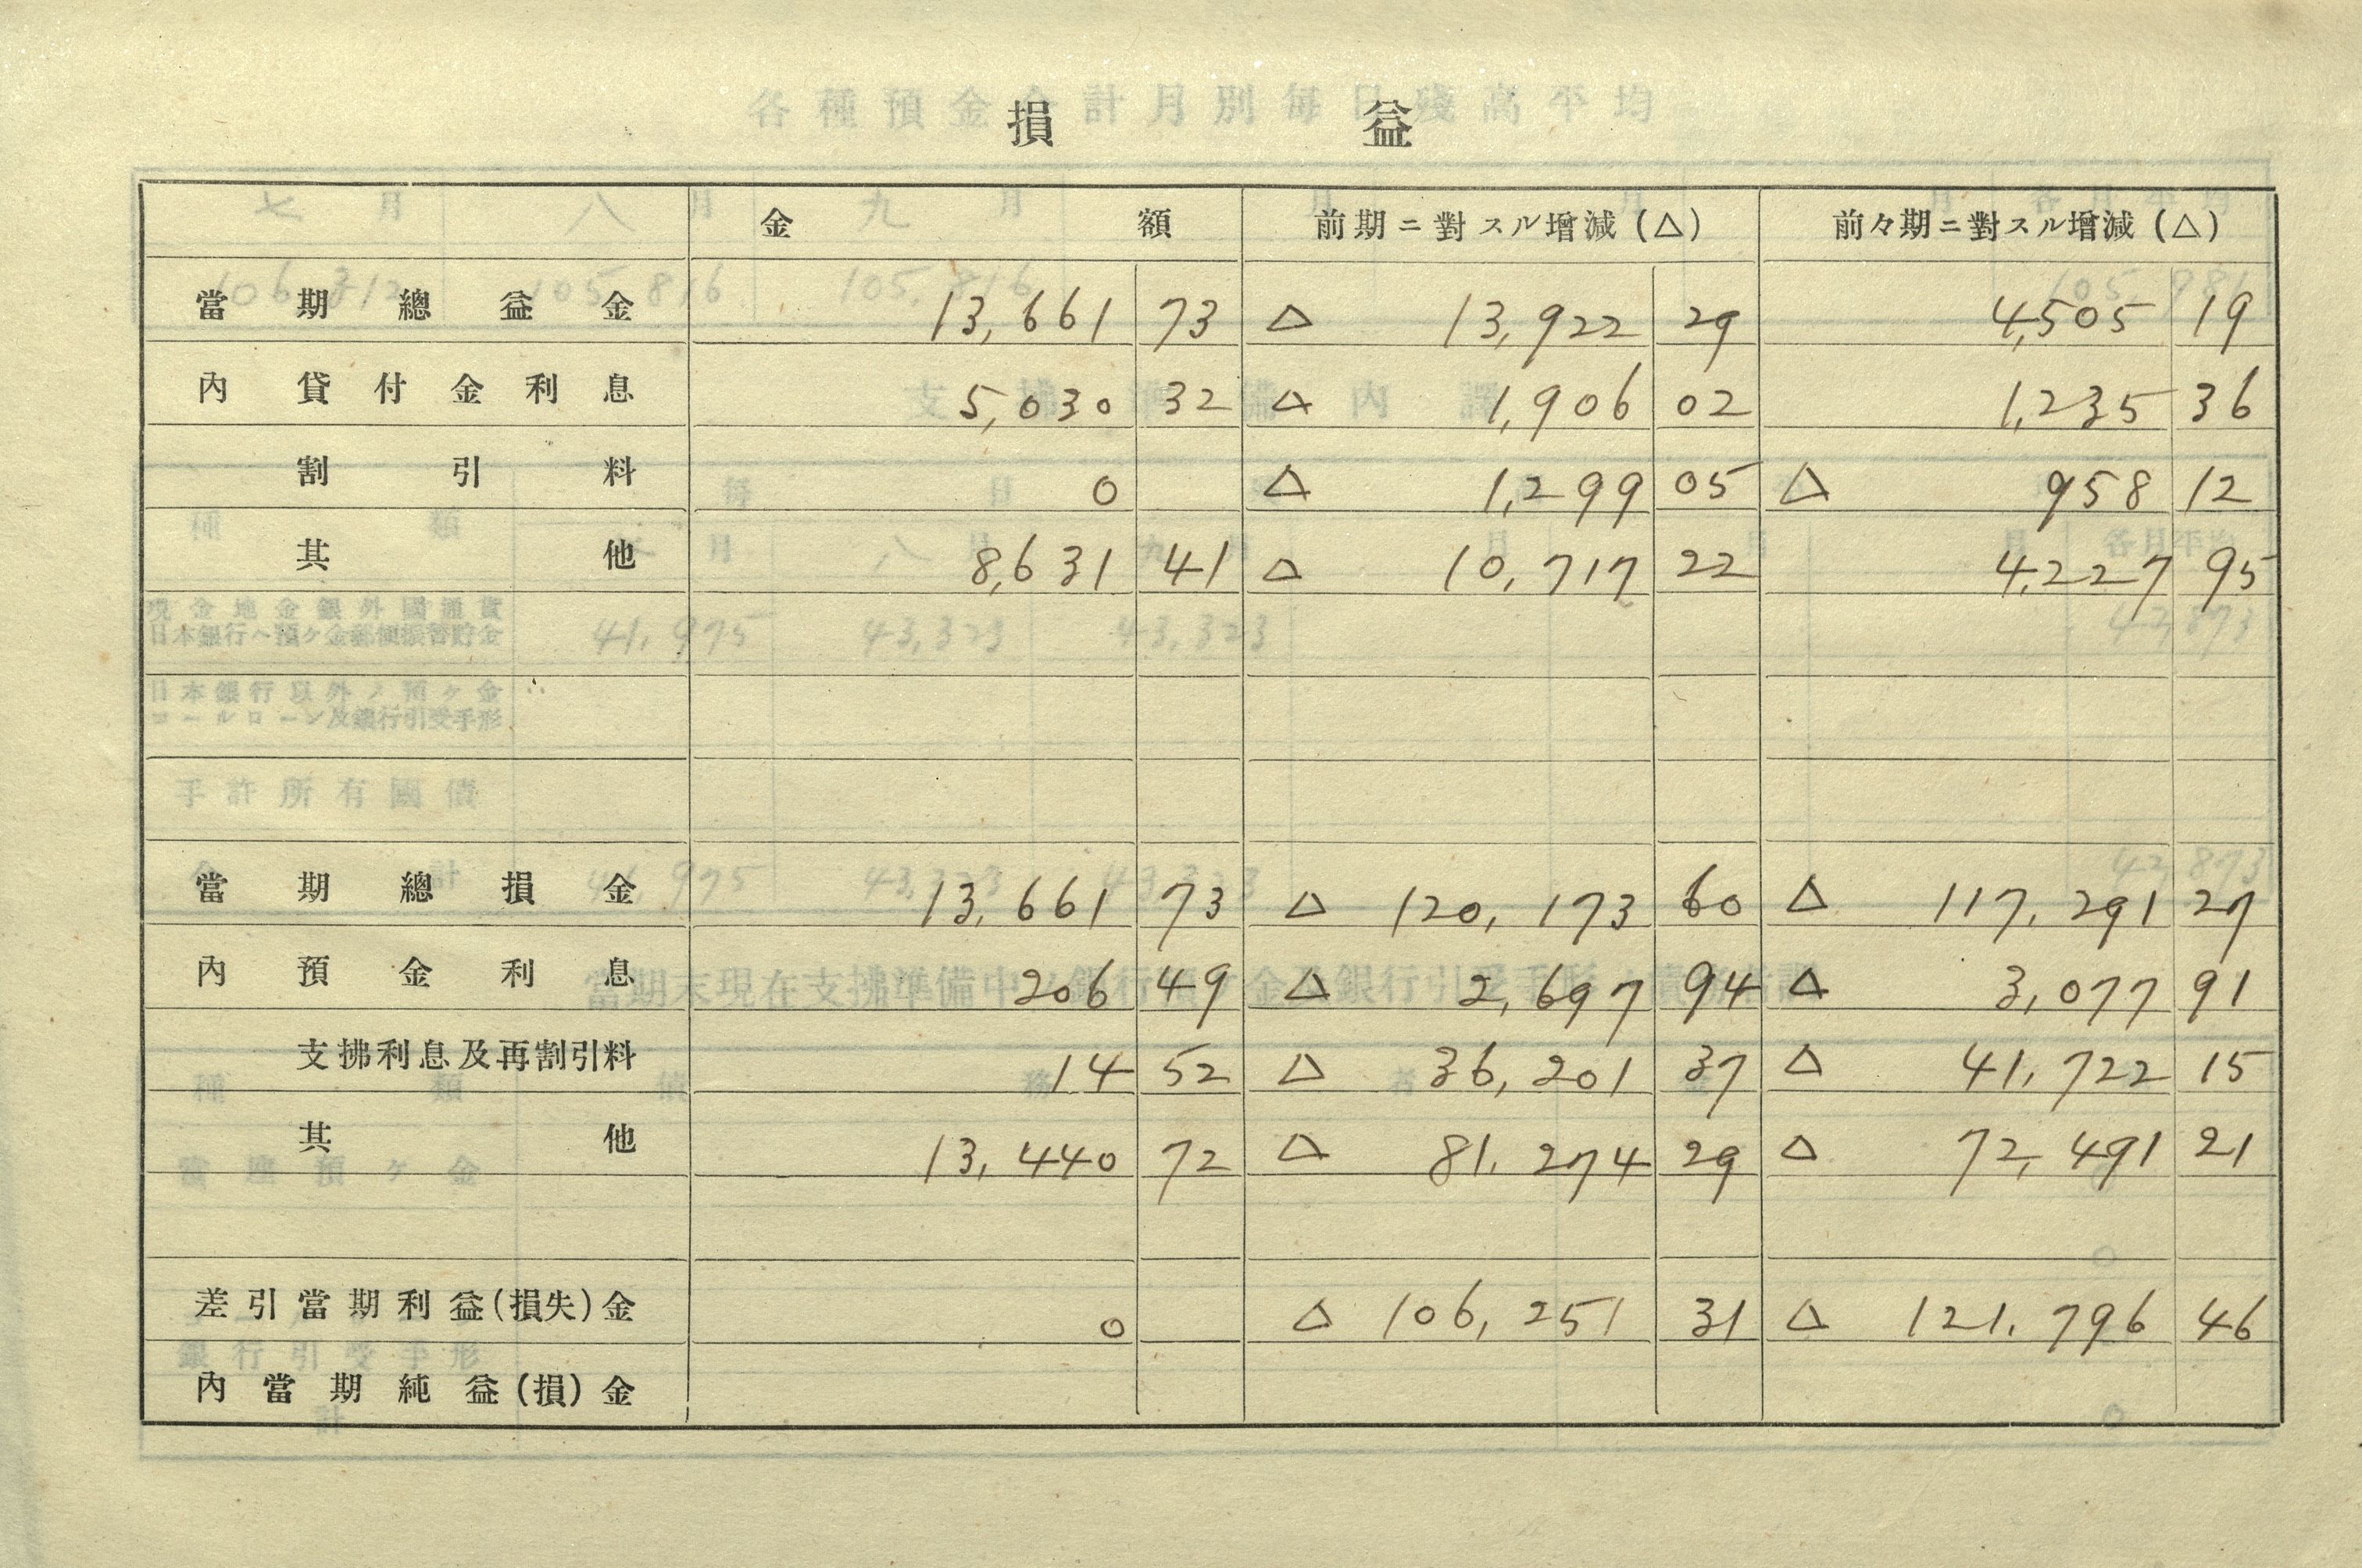 損益
金額 前期ニ對スル增減(△) 前々期ニ對スル增減(△)
當期總益金 13,661 73 △ 13,922 29 4,505 19
內 貸付金利息 5,030 32 △ 1,906 02 1,235 36
割引料 0 △ 1,299 05 △ 958 12
其他 8,631 41 △ 10,717 22 4,227 95
當期總損金 13,661 73 △ 120,173 60 △ 117,291 27
內 預金利息 206 49 △ 2,697 94 △ 3,077 91
支拂利息及再割引料 14 52 △ 36,201 37 △ 41,722 15
其他 13,440 72 △ 81,274 29 △ 72,491 21
差引當期利益(損失)金 0 △ 106,251 31 △ 121,796 46
內當期純益(損)金